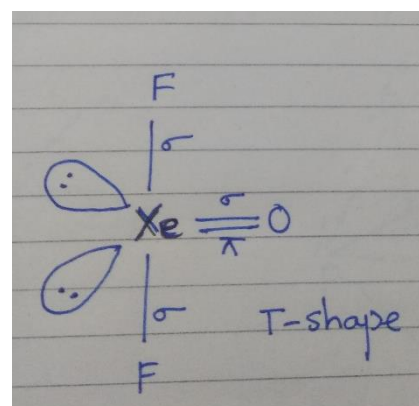 F
σ
σ
Xe O
π
σ
T-shape
F